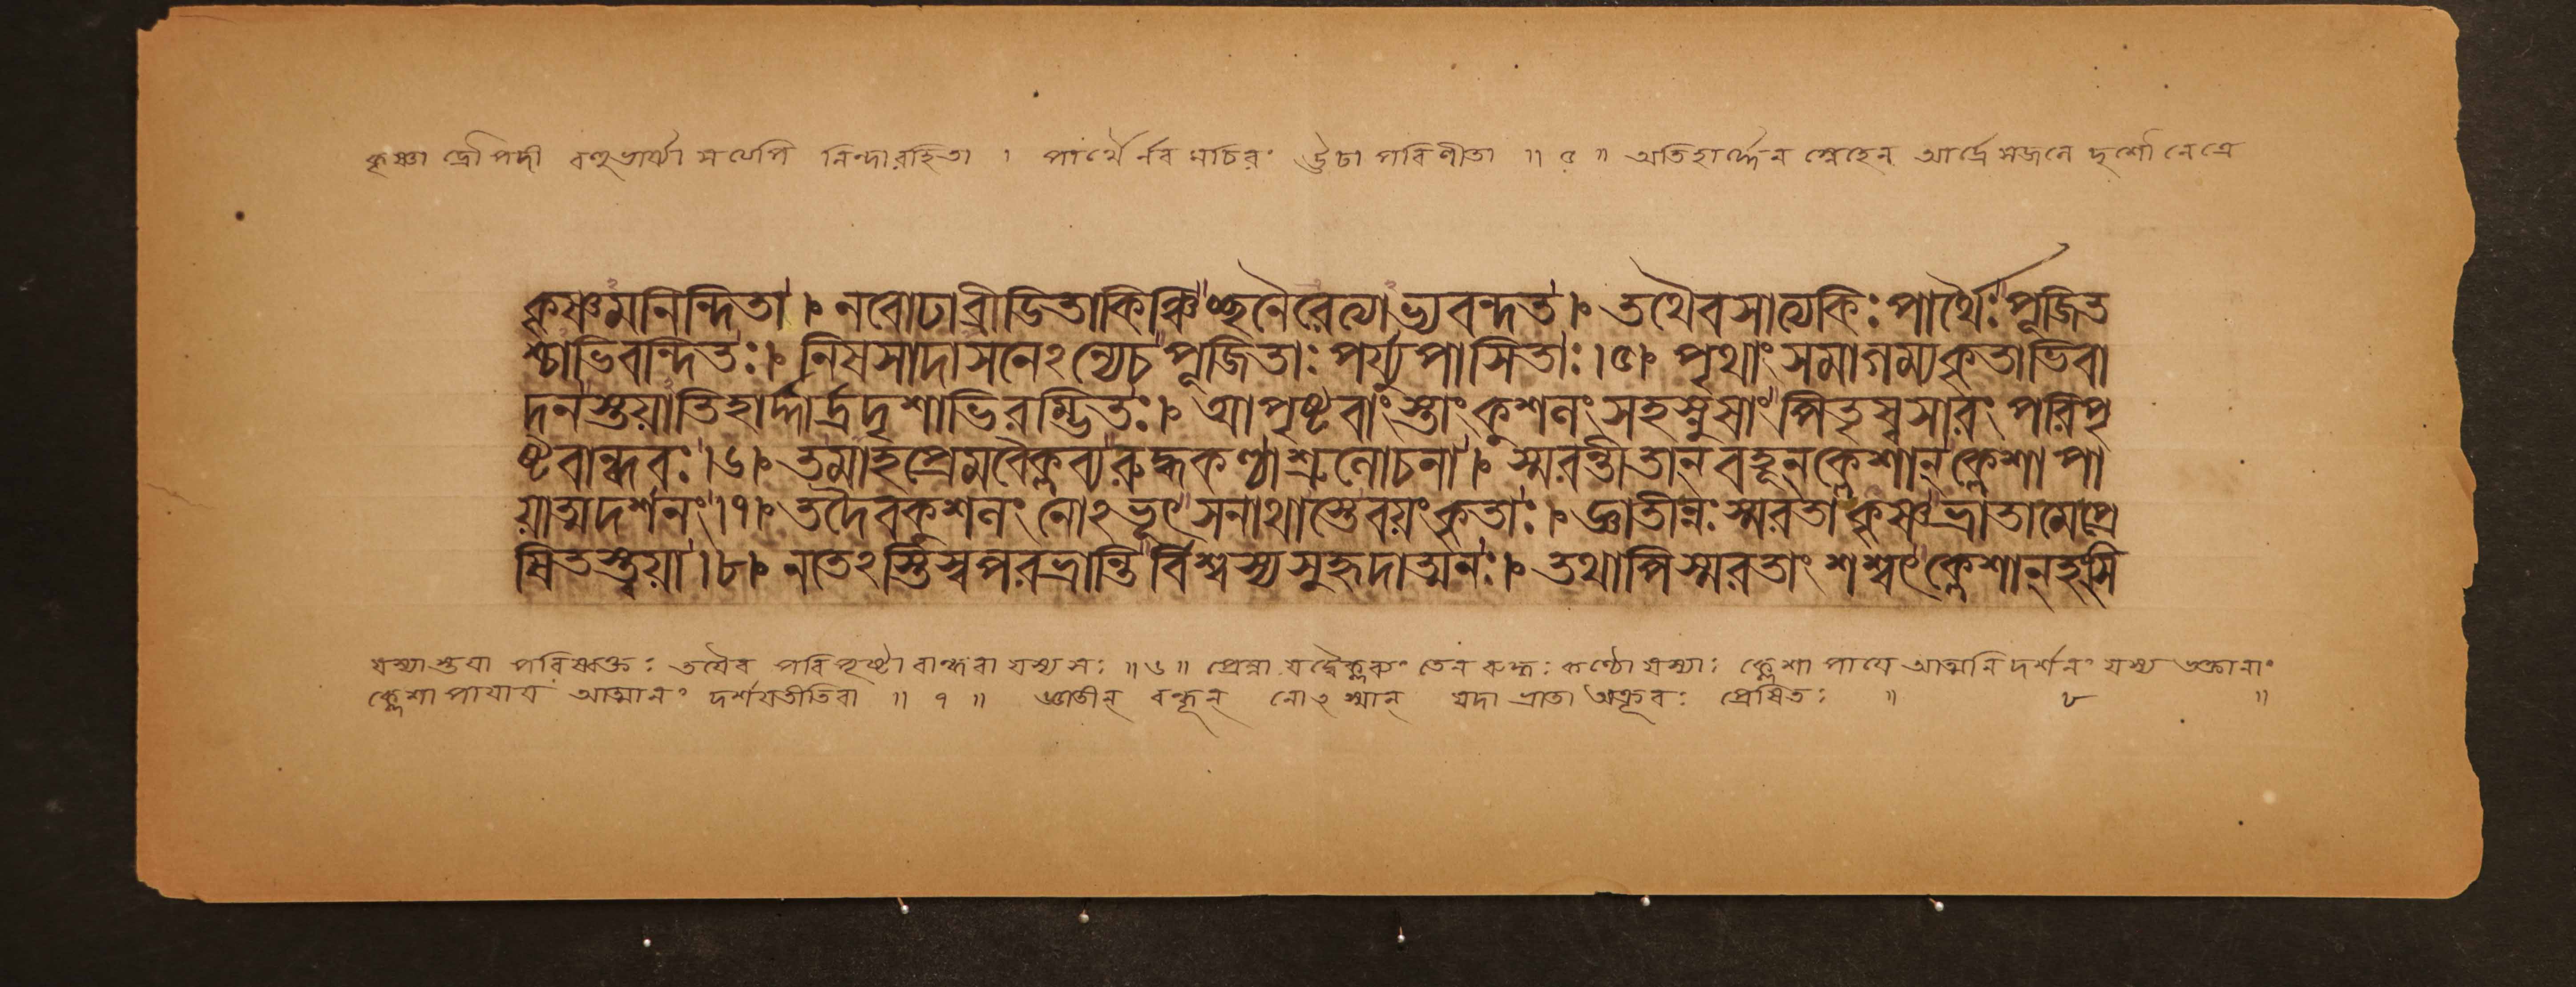 কৃষ্ণা দ্রৌপদী বহুভার্য্যা মধ্যেপি নিন্দারহিতা । পার্থৈর্নব মচিরং ঊঢা পরিণীতা ॥ ৫ ॥ অতিহার্দ্দেন স্নেহেন আর্দ্রে সজলে দৃশৌ নেত্রে
কৃষ্ণমনিন্দিতা । নবোঢাব্রীডিতাকিঞ্চিচ্ছনৈরেত্যাভ্যবন্দত । তথৈবসাত্যকিঃ পার্থৈঃ পূজিত
শ্চাভিবন্দিতঃ । নিষসাদাসনেঽন্যেচ পূজিতাঃ পর্য্যুপাসিতাঃ ।৫। পৃথাং সমাগম্যকৃতাভিবা
দনস্তয়াতিহার্দ্দার্দ্রদৃশাভিরম্ভিতঃ । আপৃষ্টবাংস্তাং কুশলং সহস্নুষাং পিতৃস্বসারং পরিপৃ
ষ্টবান্ধবঃ ।৬। তমাহপ্রেমবৈক্লব্যরুদ্ধকণ্ঠাশ্রুলোচনা । স্মরন্তীতান্ বহূন্ক্লেশান্ ক্লেশাপা
য়াত্মদর্শনং ।৭। তদৈবকুশলং নোঽভূৎ সনাথাস্তেবয়ং কৃতাঃ । জ্ঞাতীন্নঃ স্মরতা কৃষ্ণভ্রাতামেপ্রে
ষিতস্ত্বয়া ।৮। নতেঽস্তিস্বপরভ্রান্তির্বিশ্বস্যসুহৃদাত্মনঃ । তথাপিস্মরতাং শশ্বৎ ক্লেশান্ হংসি
যস্যাস্তয়া পরিষ্বক্তঃ তথৈব পরিপৃষ্টা বান্ধবা যস্য সঃ ॥ ৬ ॥ প্রেম্না যদ্বৈক্লব্যং তেন রুদ্ধঃ কণ্ঠো যস্যাঃ ক্লেশাপায়ে আত্মনি দর্শনং যস্য ভক্তানাং
ক্লেশাপায়ায় আত্মানং দর্শয়তীতিবা ॥ ৭ ॥ জ্ঞাতীন্ বন্ধূন্ নোঽস্মান্ যদা ভ্রাতা অক্রূরঃ প্রেষিতঃ ॥ ৮ ॥